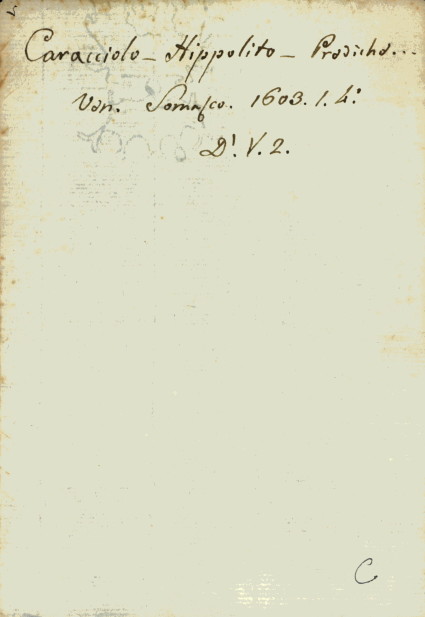 Caracciolo - Hippolito - Prediche...
Ven. Somasco. 1603. 1. 4.º
D'. V. 2.
C